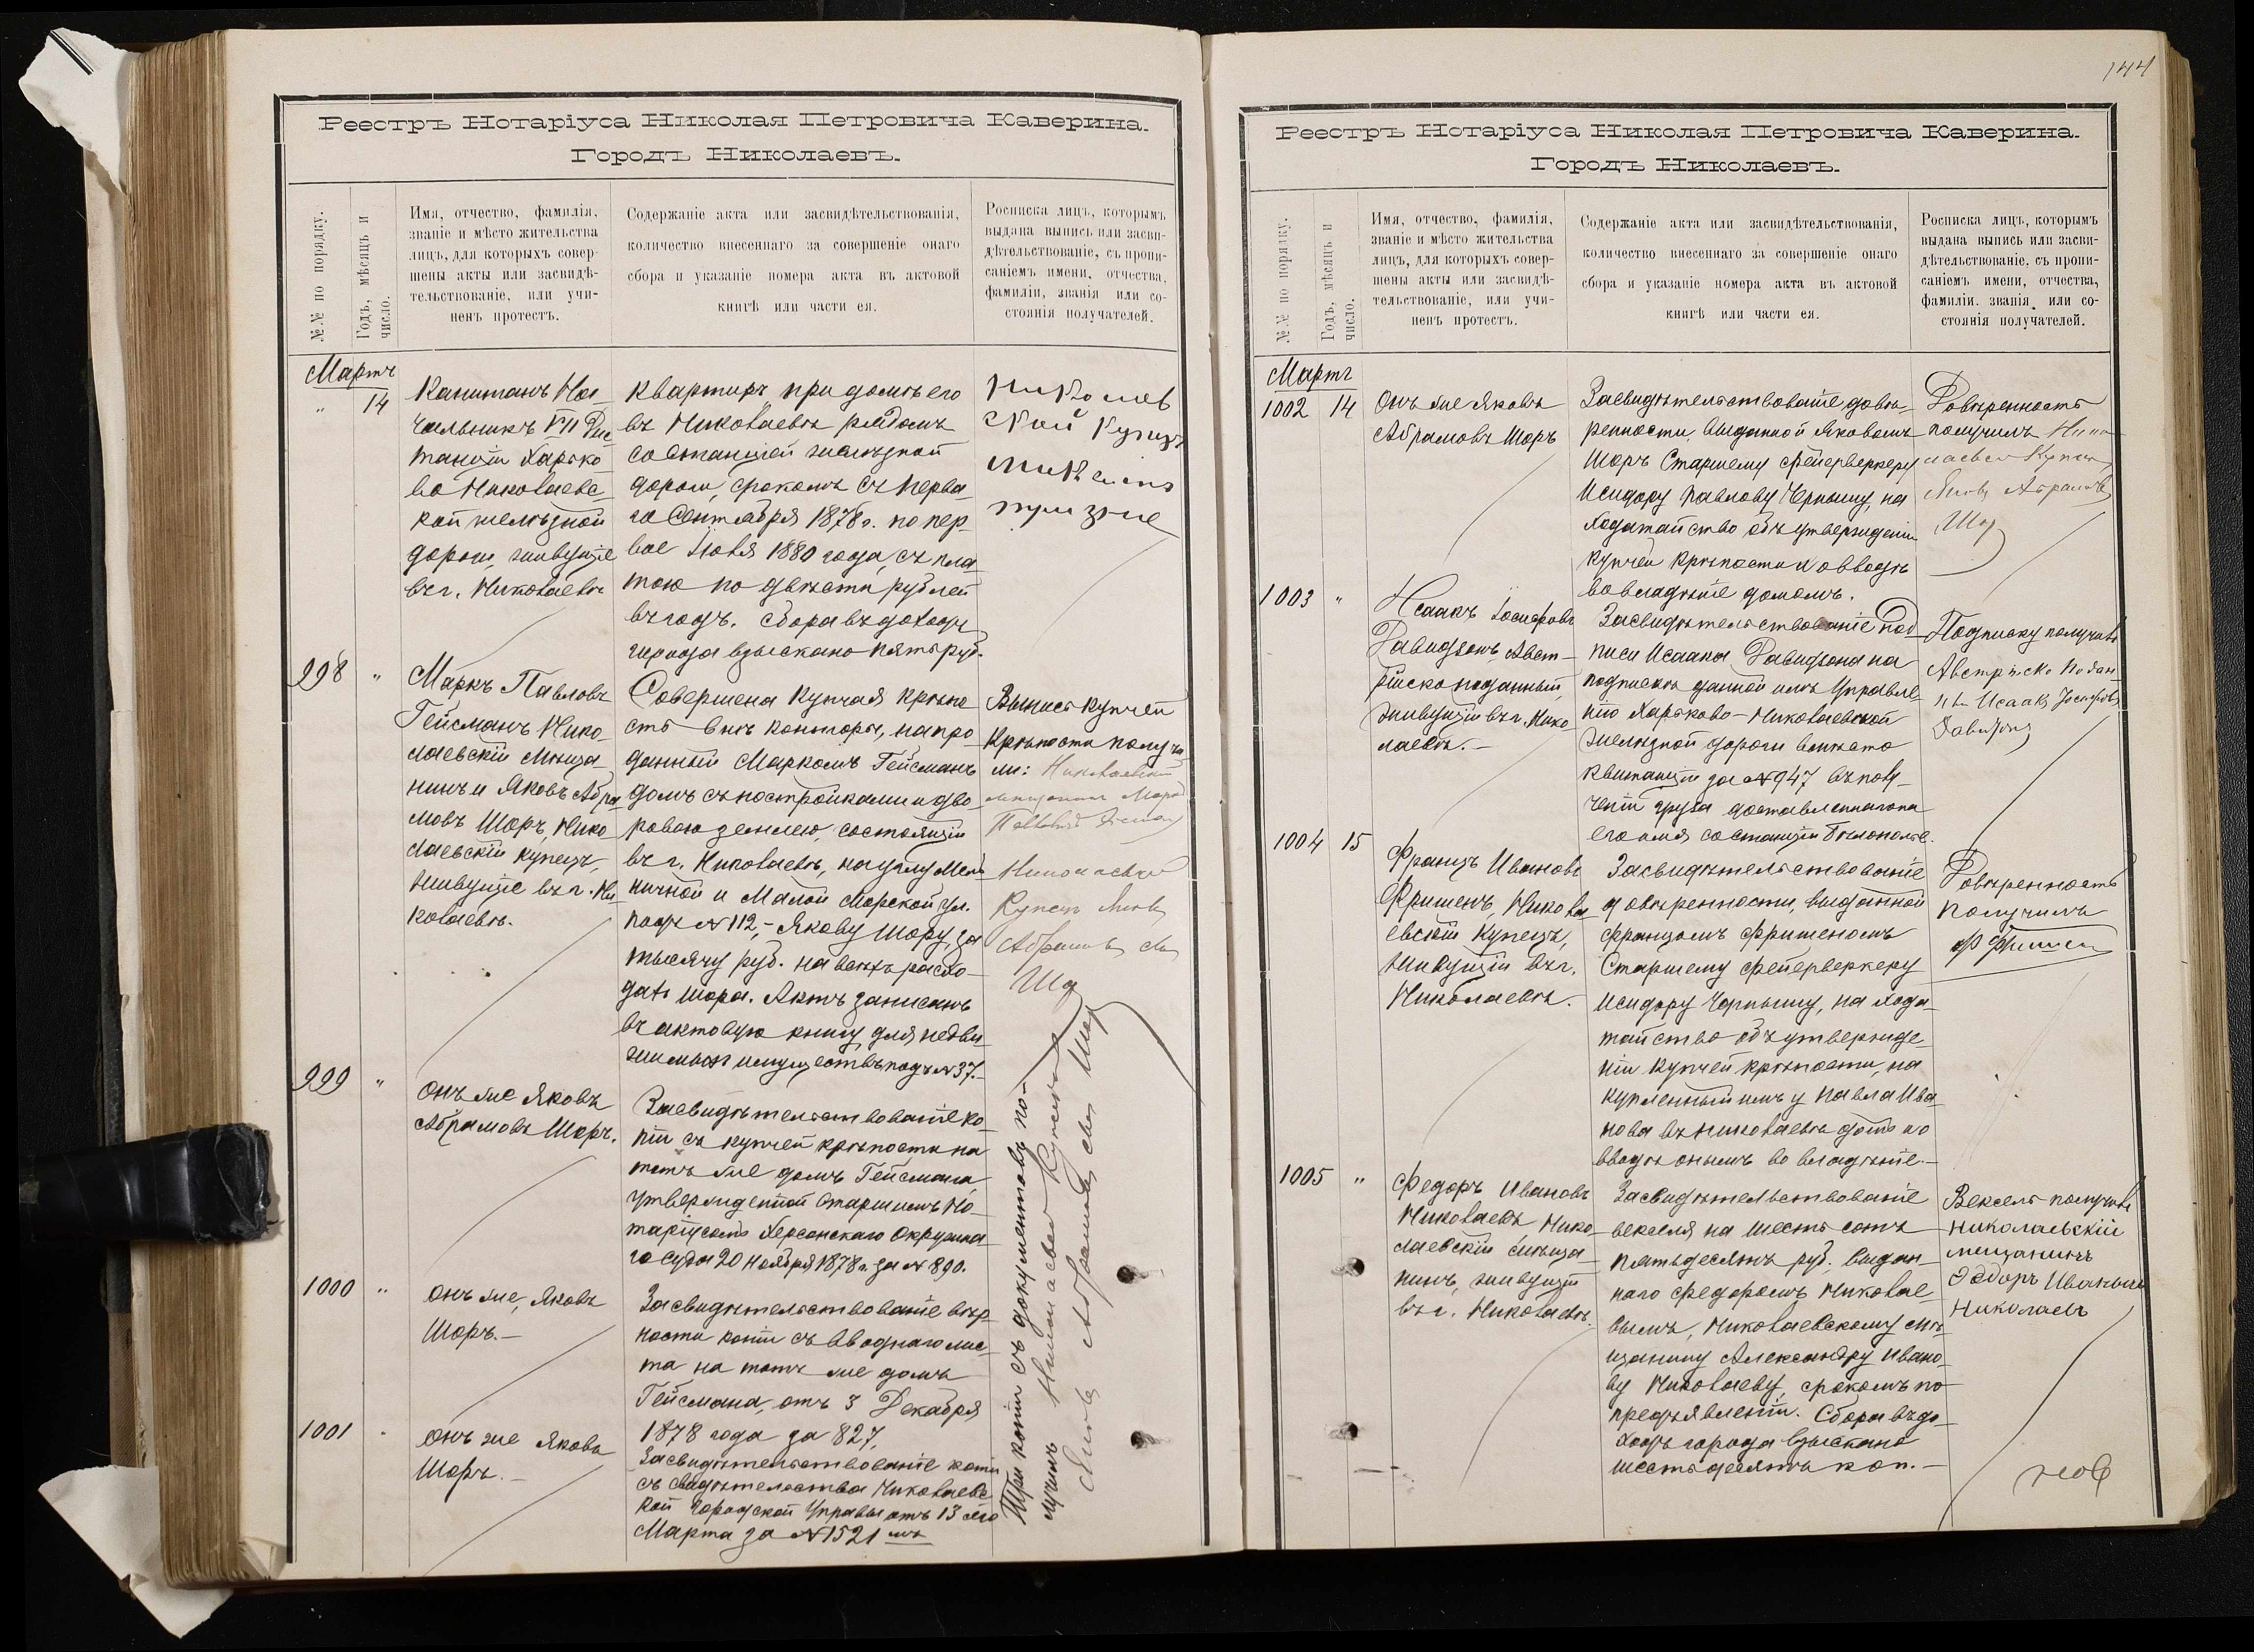 Реестръ Нотаріуса Николая Петровича Каверина.
Городъ Николаевъ.
№№ по порядку.
Годъ, мѣсяцъ и
число.
Имя, отчество, фамилія,
званіе и мѣсто жительства
лицъ, для которыхъ совер-
шены акты или засвидѣ-
тельствованіе, или учи-
ненъ протестъ.
Содержаніе акта или засвидѣтельствованія,
количество внесеннаго за совершеніе онаго
сбора и указаніе номера акта въ актовой
книгѣ или части ея.
Росписка лицъ, которымъ
выдана выпись или засви-
дѣтельствованіе, съ пропи-
саніемъ имени, отчества,
фамиліи, званія или со-
стоянія получателей.
Мартъ
" 14
Капитанъ На-
чальникъ VII Дис
танціи Харько
во Николаевс-
кой желѣзной
дороги, живущіе
въ г. Николаевѣ
квартиръ при домѣ его
въ Николаевѣ рядомъ
со Станціей желѣзной
дороги, срокомъ съ перва-
го Сентября 1878 г. по пер-
вое Іюля 1880 года, съ пла-
тою по двѣсти рублей
въ годъ. Сбора въ доходъ
города взыскано пять руб.
Николаев
ской Купецъ
998 "
Маркъ Павловъ
Гейсманъ Нико-
лаевскій Мѣща-
нинъ и Яковъ Абра
мовъ Шоръ, Нико
лаевскій купецъ,
живущіе въ г. Ни
колаевѣ.
Совершена Купчая крѣпо
сть внѣ конторы, на про-
данный Маркомъ Гейсманъ
домъ съ постройками и дво-
ровою землею, состоящій
въ г. Николаевѣ, на углу Мель
ничной и Малой Морской ул.
подъ № 112,- Якову Шору, за
тысячу руб. на всехъ расхо-
дахъ Шора. Актъ записанъ
въ актовую книгу для недви
жимыхъ имуществъ подъ № 37.-
Выпись купчей
крѣпости получи
ли: Николаевскій
мещанинъ Марк
Николаевскій
Купецъ Яковъ
Абрамовъ
Шор
999 "
Онъ же Яковъ
Абрамовъ Шоръ.
Засвидѣтельствованіе ко-
піи съ купчей крѣпости на
тотъ же домъ Гейсмана
утвержденной Старшимъ Но-
таріусомъ Херсонскаго Окружна-
го суда 20 Ноября 1878 г. за № 890.
1000 "
Онъ же, Яковъ
Шоръ.-
Засвидѣтельствованіе вѣр
ности копіи съ вводнаго лис-
та на тотъ же домъ
Гейсмана, отъ 3 Декабря
1878 года за 827.
1001
Онъ же Яковъ
Шоръ.-
Засвидѣтельствованіе копіи
съ свидѣтельства Николаевс
кой Городской Управы отъ 13 сего
Марта за № 1521 мъ
Три копіи съ документовъ по-
лучилъ Николаевскій Купецъ
Яковъ Абрамовъ Шор
144
Реестръ Нотаріуса Николая Петровича Каверина.
Городъ Николаевъ.
№№ по порядку.
Годъ, мѣсяцъ и
число.
Имя, отчество, фамилія,
званіе и мѣсто жительства
лицъ, для которыхъ совер-
шены акты или засвидѣ-
тельствованіе, или учи-
ненъ протестъ.
Содержаніе акта или засвидѣтельствованія,
количество внесеннаго за совершеніе онаго
сбора и указаніе номера акта въ актовой
книгѣ или части ея.
Росписка лицъ, которымъ
выдана выпись или засви-
дѣтельствованіе, съ пропи-
саніемъ имени, отчества,
фамиліи, званія или со-
стоянія получателей.
Мартъ
1002 14
Онъ же Яковъ
Абрамовъ Шоръ
Засвидѣтельствованіе довѣ-
ренности, выданной Яковомъ
Шоръ Старшему фейерверкеру
Исидору Павлову Черпышу, на
ходатайство объ утвержденіи
купчей крѣпости и о вводѣ
во владѣніе домомъ.
Довѣренность
получилъ Нико
лаевск Купец
Яковъ Абрамовъ
Шор
1003 "
Исаакъ Іосифовъ
Давидзонъ, Авст-
рійско подданный,
живущій въ г. Нико
лаевѣ.-
Засвидѣтельствованіе под
писи Исаака Давидзона на
подпискѣ данной имъ Управле-
нію Харьково-Николаевской
желѣзной дороги вмѣсто
квитанціи за № 947 въ полу-
ченіи груза доставленнаго на
его имя со станціи Бѣлополье.
Подписку получилъ
Австрійско Поддан-
ный Исаакъ Іосифовъ
Давидзонъ
1004 15
Францъ Ивановъ
Фришенъ, Никола
евскій Купецъ,
живущій въ г.
Николаевѣ.
Засвидѣтельствованіе
довѣренности, выданной
Францомъ Фришеномъ
Старшему фейерверкеру
Исидору Чорпышу, на хода-
тайство объ утвержде-
ніи купчей крѣпости, на
купленный имъ у Павла Ива-
нова въ Николаевѣ домъ и о
вводѣ онымъ во владѣніе.-
Довѣренность
получилъ
Ф Фришен
1005 "
Федоръ Ивановъ
Николаевъ Нико-
лаевскій мѣща-
нинъ, живущій
въ г. Николаевѣ.
Засвидѣтельствованіе
векселя на шесть сотъ
пятьдесятъ руб. выдан-
наго Федоромъ Николае-
вымъ, Николаевскому мѣ-
щанину Александру Ивано-
ву Николаеву, срокомъ по
предъявленіи. Сбора въ до-
ходъ города взыскано
шестьдесятъ коп.-
Вексель получилъ
Николаевскій
мещанинъ
Федоръ Ивановъ
Николаевъ